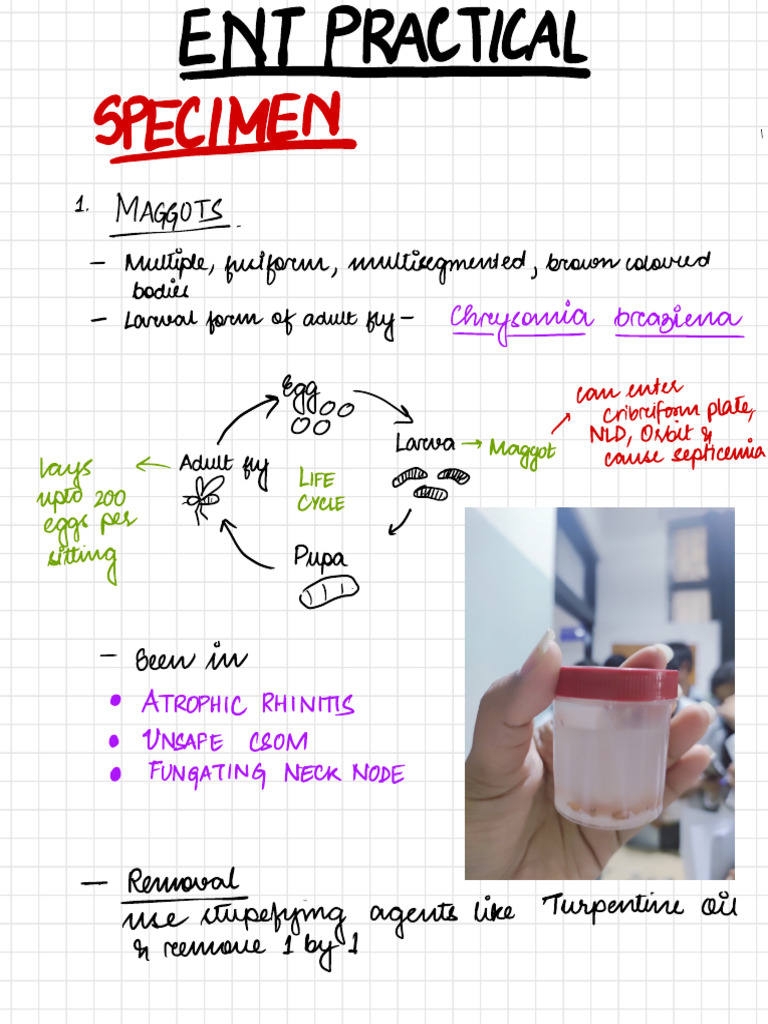 ENT PRACTICAL
SPECIMEN
1. MAGGOTS
- Multiple, fusiform, multisegmented, brown coloured
bodies
- Larval form of adult fly - Chrysomia breaziena
Egg
Larva → Maggot
can enter
cribriform plate,
NLD, Orbit &
cause septicemia
Adult fly
lays
upto 200
eggs per
sitting
LIFE
CYCLE
Pupa
- Seen in
• ATROPHIC RHINITIS
• UNSAFE CSOM
• FUNGATING NECK NODE
- Removal
use stupefying agents like Turpentine oil
& remove 1 by 1